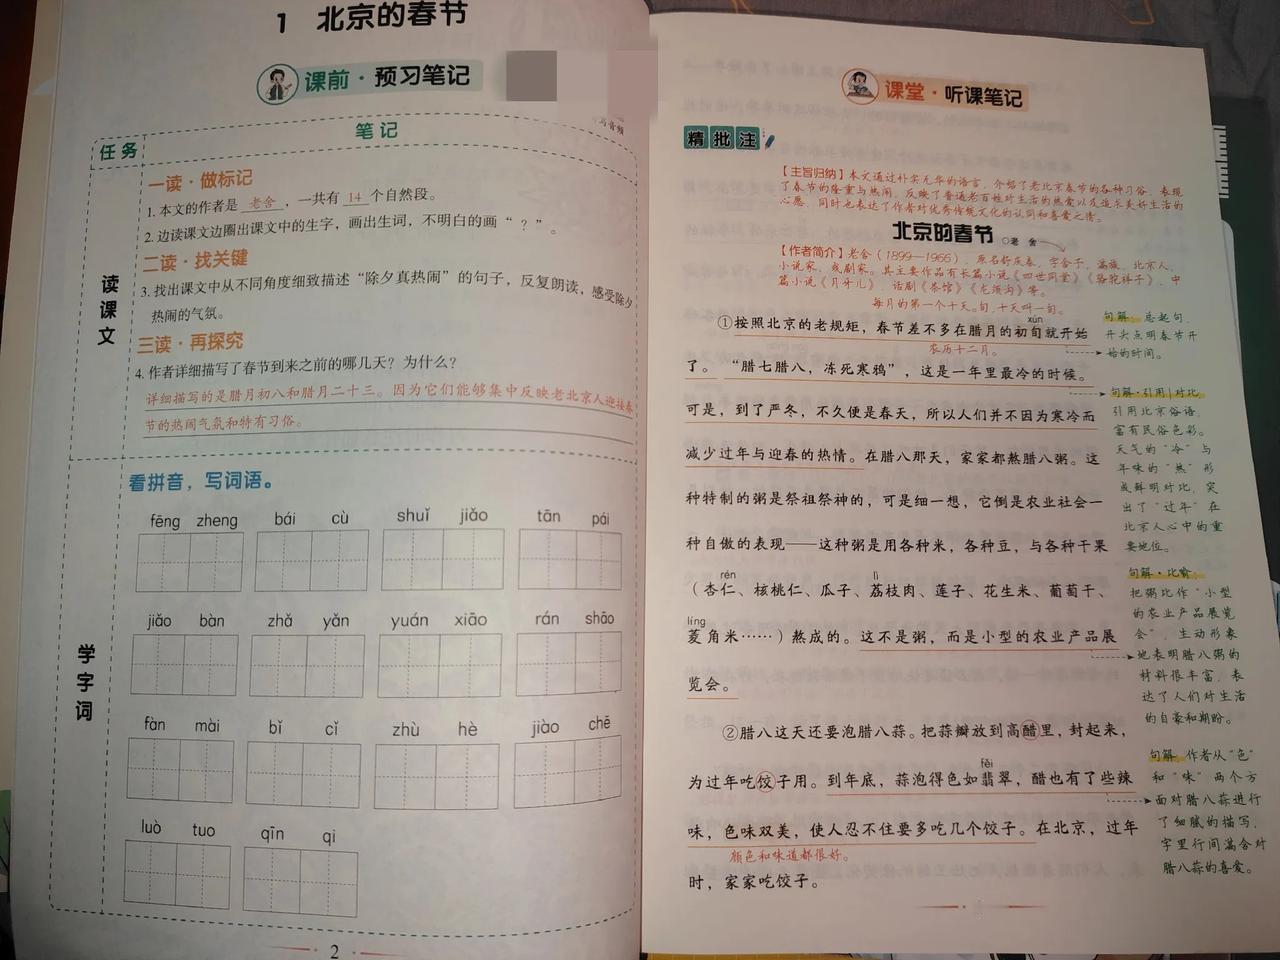 1 北京的春节
课前·预习笔记
任务
笔记
读课文
一读·做标记
1. 本文的作者是 老舍 ，一共有 14 个自然段。
2. 边读课文边圈出课文中的生字，画出生词，不明白的画“？”。
二读·找关键
3. 找出课文中从不同角度细致描述“除夕真热闹”的句子，反复朗读，感受除夕
热闹的气氛。
三读·再探究
4. 作者详细描写了春节到来之前的哪几天？为什么？
详细描写的是腊月初八和腊月二十三。因为它们能够集中反映老北京人迎接春
节的热闹气氛和特有习俗。
学字词
看拼音，写词语。
fēng zheng bái cù shuǐ jiǎo tān pái
jiǎo bàn zhǎ yǎn yuán xiāo rán shāo
fàn mài bǐ cǐ zhù hè jiào chē
luò tuo qīn qi
2
课堂·听课笔记
精批注
【主旨归纳】本文通过朴实无华的语言，介绍了老北京春节的各种习俗，表现
了春节的隆重与热闹，反映了普通老百姓对生活的热爱以及追求美好生活的
心愿，同时也表达了作者对优秀传统文化的认同和喜爱之情。
北京的春节 ○老 舍
【作者简介】老舍（1899—1966），原名舒庆春，字舍予，满族，北京人，
小说家、戏剧家。其主要作品有长篇小说《四世同堂》《骆驼祥子》，中
篇小说《月牙儿》，话剧《茶馆》《龙须沟》等。
每月的第一个十天。旬，十天叫一旬。
xún
①按照北京的老规矩，春节差不多在腊月的初旬就开始
农历十二月。
了。“腊七腊八，冻死寒鸦”，这是一年里最冷的时候。
可是，到了严冬，不久便是春天，所以人们并不因为寒冷而
减少过年与迎春的热情。在腊八那天，家家都熬腊八粥。这
种特制的粥是祭祖祭神的，可是细一想，它倒是农业社会一
种自傲的表现——这种粥是用各种米，各种豆，与各种干果
rén lì
（杏仁、核桃仁、瓜子、荔枝肉、莲子、花生米、葡萄干、
líng
菱角米……）熬成的。这不是粥，而是小型的农业产品展
览会。
②腊八这天还要泡腊八蒜。把蒜瓣放到高醋里，封起来，
fěi
为过年吃饺子用。到年底，蒜泡得色如翡翠，醋也有了些辣
味，色味双美，使人忍不住要多吃几个饺子。在北京，过年
颜色和味道都很好。
时，家家吃饺子。
句解：总起句，
开头点明春节开
始的时间。
句解·引用|对比
引用北京俗语，
富有民俗色彩。
天气的“冷”与
年味的“热”形
成鲜明对比，突
出了“过年”在
北京人心中的重
要地位。
句解·比喻：
把粥比作“小型
的农业产品展览
会”，生动形象
地表明腊八粥的
材料很丰富，表
达了人们对生活
的自豪和期盼。
句解：作者从“色”
和“味”两个方
面对腊八蒜进行
了细腻的描写，
字里行间满含对
腊八蒜的喜爱。